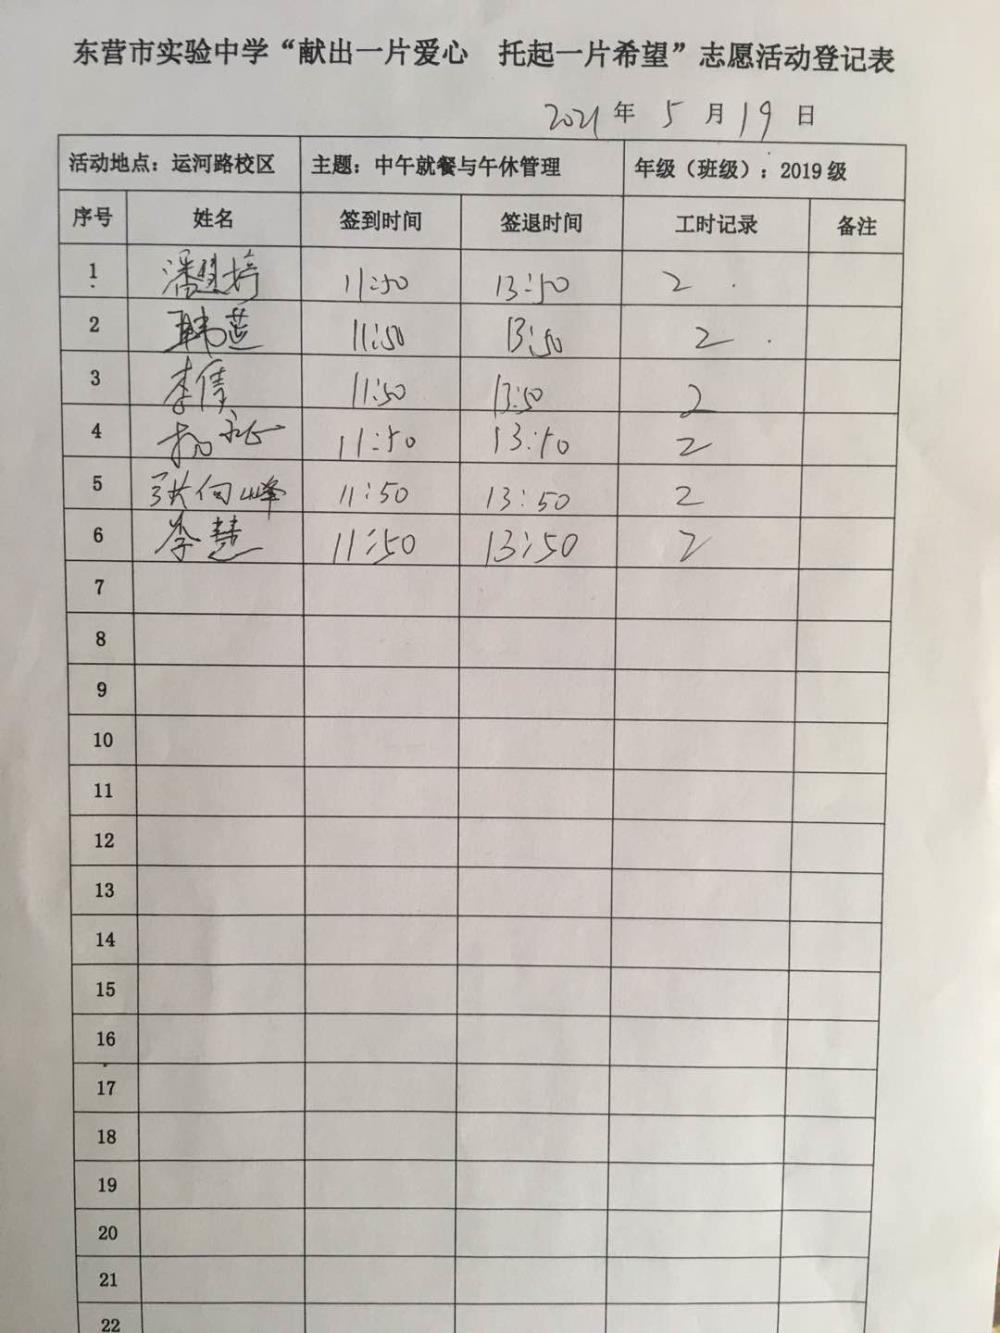 东营市实验中学“献出一片爱心 托起一片希望”志愿活动登记表
2021年 5月19日
活动地点：运河路校区 主题：中午就餐与午休管理 年级（班级）：2019级
序号 姓名 签到时间 签退时间 工时记录 备注
1 11:50 13:50 2
2 11:50 13:50 2
3 李倩 11:50 13:50 2
4 11:50 13:50 2
5 张向峰 11:50 13:50 2
6 李慧 11:50 13:50 2
7
8
9
10
11
12
13
14
15
16
17
18
19
20
21
22